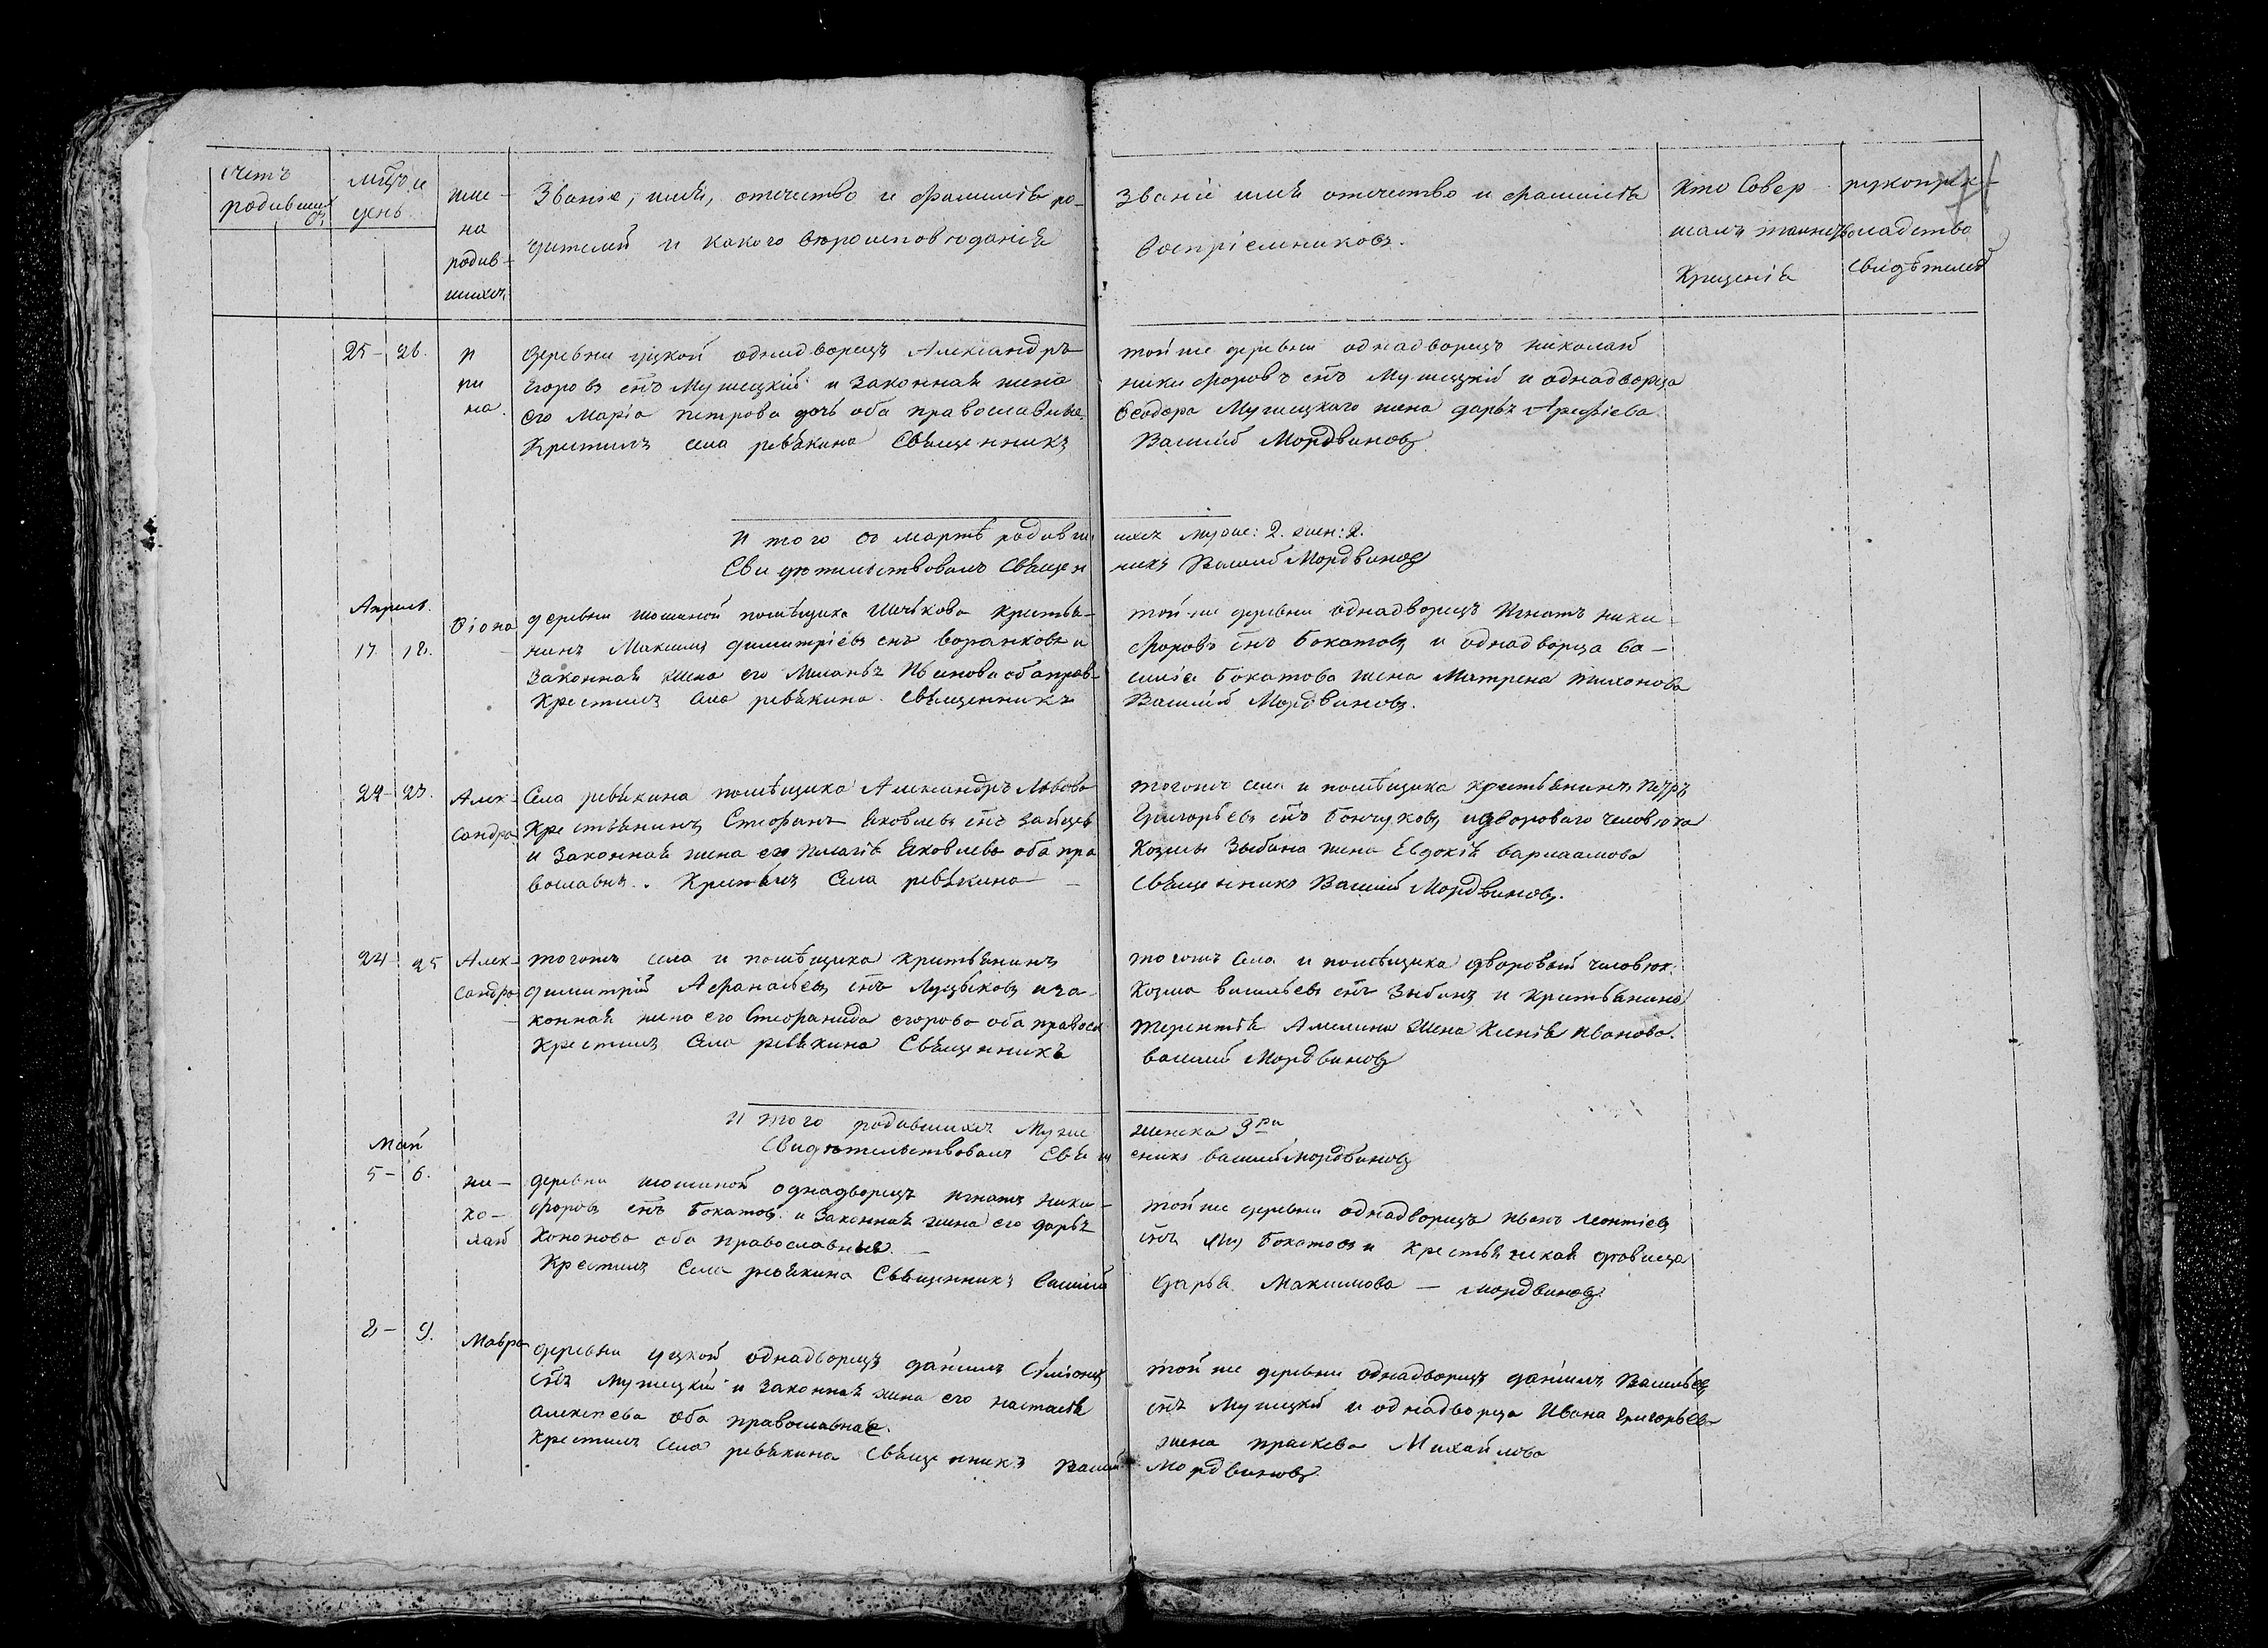 счетъ родившихся
мцъ и день
име-
на
родив-
шихся
Званіе, имя, отечество и фамилія ро-
дителей и какого вероисповеданія
Званіе имя отечество и фамилія
воспріемниковъ.
Кто совер
шалъ таинство
Крещенія
рукоприк-
ладство
свидѣтелей
25 - 26.
И
ри
на.
деревни однадворецъ Александръ
Егоровъ снъ Мужецкій и законная жена
его Марія Петрова дочь оба православные.
Крестилъ села ревякина Священникъ
той же деревни однадворецъ николай
никифоровъ снъ Мужецкій и однадворца
Ѳеодора Мужецкаго жена дарья Арефіева
Василій Мордвиновъ
И того въ мартѣ родивши
Свидетельствовалъ Священ
ихся муже: 2. жен: 2.
никъ Василій Мордвиновъ
Апрель.
17. 18.
Ѳіона
деревни шошиной помѣщика крестья-
нинъ Максимъ димитріевъ снъ воранковъ и
законная жена его Миланья оба прав-
Крестилъ села ревякина. священникъ
той же деревни однадворецъ Игнатъ ники-
форовъ снъ Бокатовъ и однадворца ва-
силія Бокатова жена Матрена тихонова
Василій Мордвиновъ.
22 - 23.
Алек-
сандра
Села ревякина помѣщика Александръ Львова
Крестьянинъ Стефанъ яковлевъ снъ Зайцевъ
и законная жена его Пелагія яковлева оба пра
вославнъ. Крестилъ Села ревякина -
тогожъ села и помѣщика крестьянинъ Петръ
Григорьевъ снъ и двороваго человека
Козмы Зыбина жена Евдокія варлаамова
Священникъ Василій Мордвиновъ.
24 - 25
Алек-
сандра
тогожъ села и помѣщика крестьянинъ
димитрій Афанасьевъ снъ и за-
конная жена его Стефанида егорова оба правосл
Крестилъ Села ревякина Священникъ
тогожъ села и помѣщика дворовый человек
Козма васильевъ снъ Зыбинъ и крестьянина
терентія Амелина жена Ксенія иванова.
василій Мордвиновъ
И того родившихся муже
Свидетельствовалъ Свящ
женска 3ри
еникъ василій мордвиновъ
Май
5 - 6.
ни-
ко-
лай
деревни шошиной однадворецъ игнатъ ники-
форовъ снъ Бокатовъ и законная жена его дарья
Кононова оба православные. -
Крестилъ села ревякина Священникъ василій
той же деревни однадворецъ иванъ леонтіевъ
снъ Бокатовъ и крестьянская девица
дарья Максимова - мордвиновъ
8 - 9.
Мавра
деревни однадворецъ даніилъ
снъ мужецкій и законная жена его настасія
алексеева оба православная.
Крестилъ Села ревякина Священникъ Василій
той же деревни однадворецъ даніилъ Васильевъ
снъ Мужецкій и однадворца Ивана григорьева
жена праскева Михайлова
Мордвиновъ